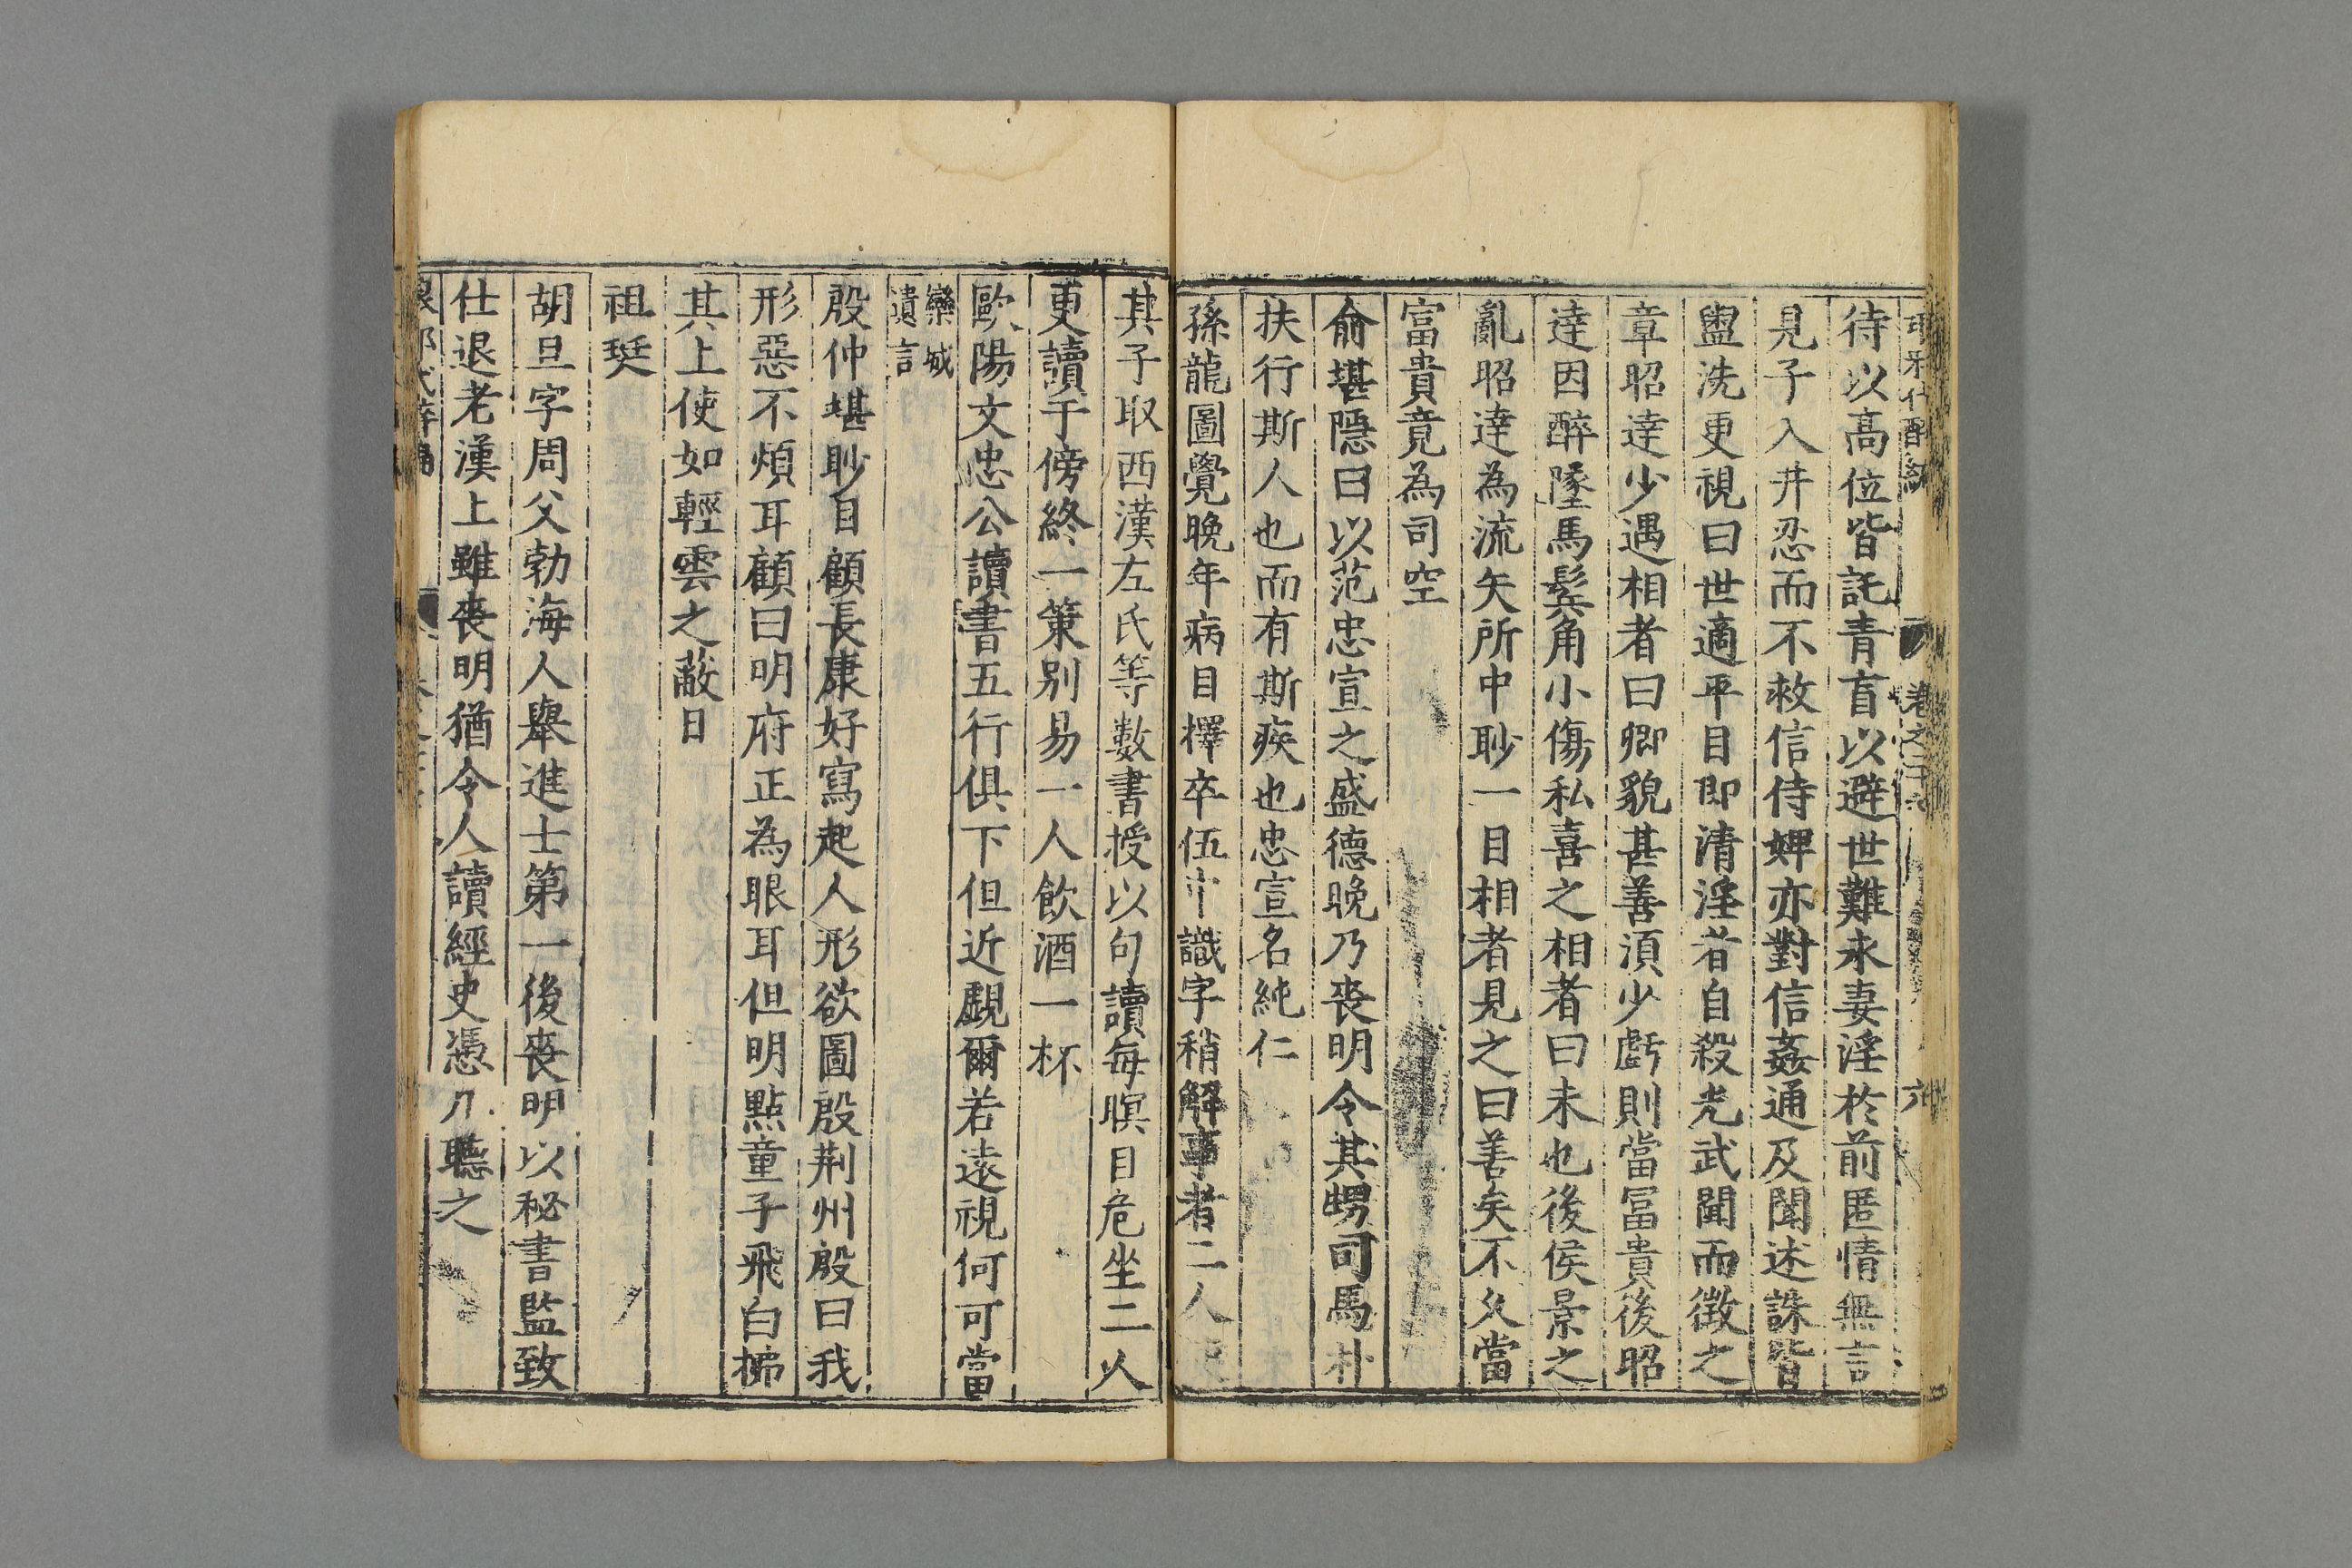 待以高位皆託青盲以避世難永妻淫於前匿情無言
見子入井忍而不救信侍婢亦對信姦通及聞述誅皆
盥洗更視曰世適平目即清淫者自殺光武聞而徴之
章昭達少遇相者曰卿貌甚善須少虧則當冨貴後昭
達因醉墜馬鬂角小傷私喜之相者曰未也後侯景之
亂昭達為流矢所中眇一目相者見之曰善矣不久當
富貴竟為司空
俞堪隱曰以范忠宣之盛德晚乃丧明令其甥司馬朴
扶行斯人也而有斯疾也忠宣名純仁
孫龍圖覺晚年病目擇卒伍中識字稍解事者二人
其子取西漢左氏等數書授以句讀每瞑目危坐二人
更讀于傍終一策别易一人飲酒一杯
歐陽文忠公讀書五行俱下但近覷爾若遠視何可當
欒城遺言
殷仲堪眇目顧長康好寫起人形欲圖殷荆州殷曰我
形惡不煩耳顧曰明府正為眼耳但明點童子飛白拂
其上使如輕雲之蔽日
祖珽
胡旦字周父勃海人舉進士第一後丧明以秘書監致
仕退老漢上雖丧明猶令人讀經史憑几聽之